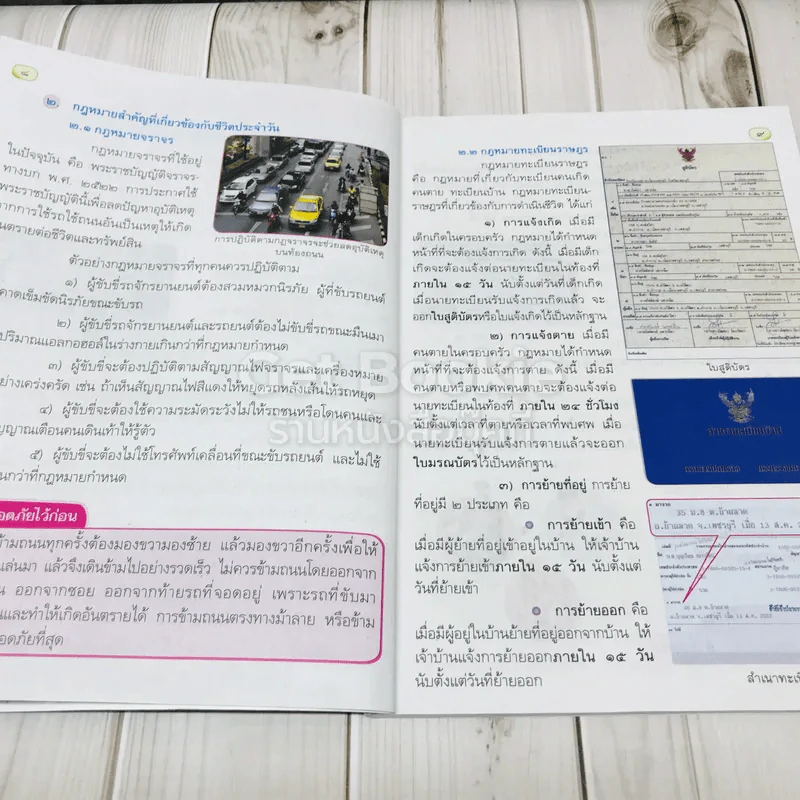 ๘
๒. กฎหมายสำคัญที่เกี่ยวข้องกับชีวิตประจำวัน
๒.๑ กฎหมายจราจร
กฎหมายจราจรที่ใช้อยู่
ในปัจจุบัน คือ พระราชบัญญัติจราจร-
ทางบก พ.ศ. ๒๕๒๒ การประกาศใช้
พระราชบัญญัตินี้เพื่อลดปัญหาอุบัติเหตุ
จากการใช้รถใช้ถนนอันเป็นเหตุให้เกิด
อันตรายต่อชีวิตและทรัพย์สิน
การปฏิบัติตามกฎจราจรจะช่วยลดอุบัติเหตุ
บนท้องถนน
ตัวอย่างกฎหมายจราจรที่ทุกคนควรปฏิบัติตาม
๑) ผู้ขับขี่รถจักรยานยนต์ต้องสวมหมวกนิรภัย ผู้ที่ขับรถยนต์
คาดเข็มขัดนิรภัยขณะขับรถ
๒) ผู้ขับขี่รถจักรยานยนต์และรถยนต์ต้องไม่ขับขี่รถขณะมึนเมา
ปริมาณแอลกอฮอล์ในร่างกายเกินกว่าที่กฎหมายกำหนด
๓) ผู้ขับขี่จะต้องปฏิบัติตามสัญญาณไฟจราจรและเครื่องหมาย
อย่างเคร่งครัด เช่น ถ้าเห็นสัญญาณไฟสีแดงให้หยุดรถหลังเส้นให้รถหยุด
๔) ผู้ขับขี่จะต้องใช้ความระมัดระวังไม่ให้รถชนหรือโดนคนและ
สัญญาณเตือนคนเดินเท้าให้รู้ตัว
๕) ผู้ขับขี่จะต้องไม่ใช้โทรศัพท์เคลื่อนที่ขณะขับรถยนต์ และไม่ใช้
กินกว่าที่กฎหมายกำหนด
อดภัยไว้ก่อน
ข้ามถนนทุกครั้งต้องมองขวามองซ้าย แล้วมองขวาอีกครั้งเพื่อให้
แล่นมา แล้วจึงเดินข้ามไปอย่างรวดเร็ว ไม่ควรข้ามถนนโดยออกจาก
น ออกจากซอย ออกจากท้ายรถที่จอดอยู่ เพราะรถที่ขับมา
นและทำให้เกิดอันตรายได้ การข้ามถนนตรงทางม้าลาย หรือข้าม
อดภัยที่สุด
๙
๒.๒ กฎหมายทะเบียนราษฎร
กฎหมายทะเบียนราษฎร
คือ กฎหมายที่เกี่ยวกับทะเบียนคนเกิด
คนตาย ทะเบียนบ้าน กฎหมายทะเบียน-
ราษฎรที่เกี่ยวข้องกับการดำเนินชีวิต ได้แก่
๑) การแจ้งเกิด เมื่อมี
เด็กเกิดในครอบครัว กฎหมายได้กำหนด
หน้าที่ที่จะต้องแจ้งการเกิด ดังนี้ เมื่อมีเด็ก
เกิดจะต้องแจ้งต่อนายทะเบียนในท้องที่
ภายใน ๑๕ วัน นับตั้งแต่วันที่เด็กเกิด
เมื่อนายทะเบียนรับแจ้งการเกิดแล้ว จะ
ออกใบสูติบัตรหรือใบแจ้งเกิดไว้เป็นหลักฐาน
๒) การแจ้งตาย เมื่อมี
คนตายในครอบครัว กฎหมายได้กำหนด
หน้าที่ที่จะต้องแจ้งการตาย ดังนี้ เมื่อมี
คนตายหรือพบศพคนตายจะต้องแจ้งต่อ
นายทะเบียนในท้องที่ ภายใน ๒๔ ชั่วโมง
นับตั้งแต่เวลาที่ตายหรือเวลาที่พบศพ เมื่อ
นายทะเบียนรับแจ้งการตายแล้วจะออก
ใบมรณบัตรไว้เป็นหลักฐาน
๓) การย้ายที่อยู่ การย้าย
ที่อยู่มี ๒ ประเภท คือ
การย้ายเข้า คือ
เมื่อมีผู้ย้ายที่อยู่เข้าอยู่ในบ้าน ให้เจ้าบ้าน
แจ้งการย้ายเข้าภายใน ๑๕ วัน นับตั้งแต่
วันที่ย้ายเข้า
การย้ายออก คือ
เมื่อมีผู้อยู่ในบ้านย้ายที่อยู่ออกจากบ้าน ให้
เจ้าบ้านแจ้งการย้ายออกภายใน ๑๕ วัน
นับตั้งแต่วันที่ย้ายออก
สูติบัตร
ใบสูติบัตร
สำเนาทะเบียนบ้าน
มาจาก
35 ม.8 ต.บ้านลาด
อ.บ้านลาด จ.เพชรบุรี เมื่อ 13 ส.ค.
สำเนาทะเบี
ร้านหนัง